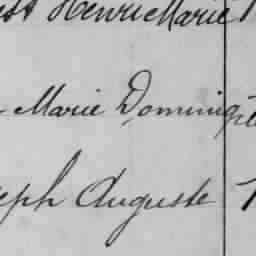 Henri Marie
Marie Dominiq
eph Auguste